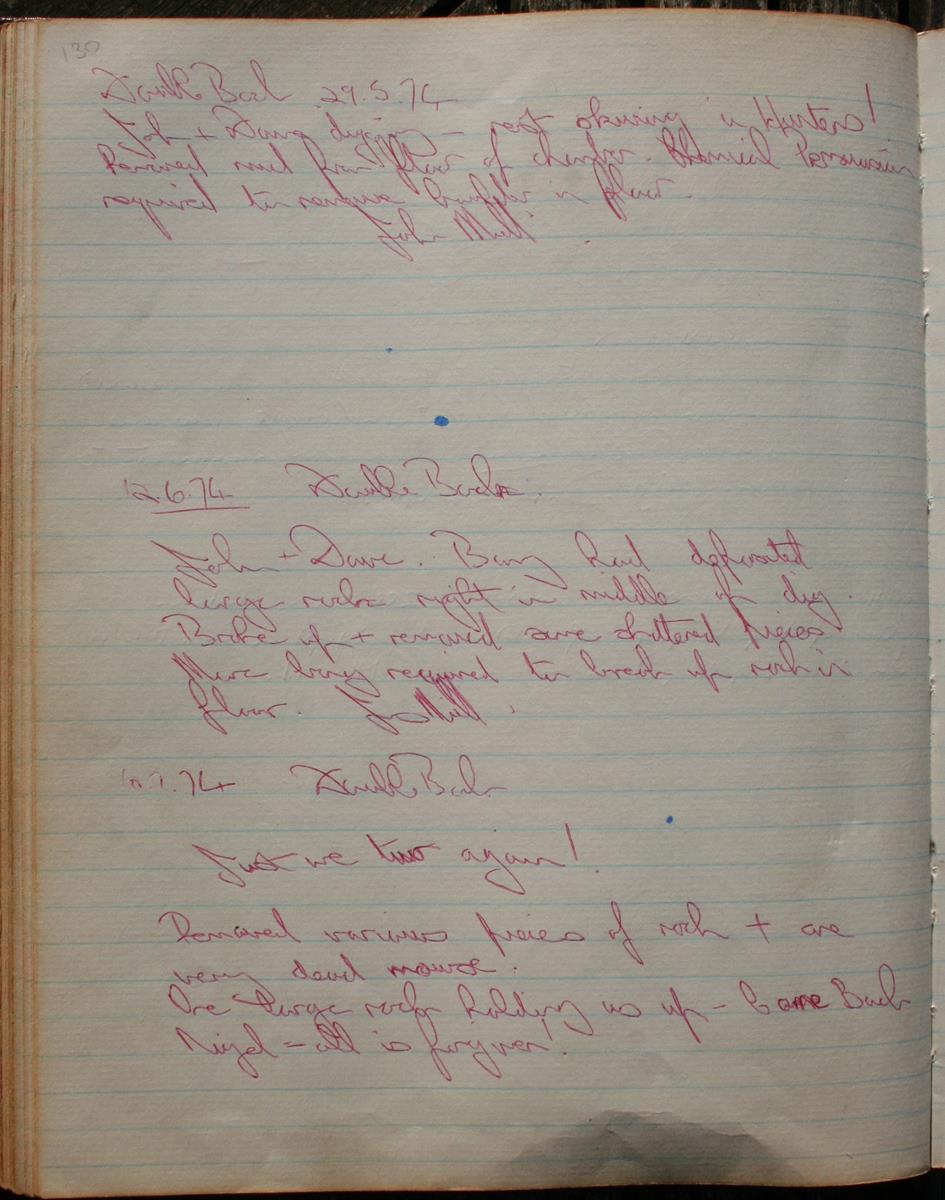 130
Double Back 29.5.74
John + Dave digging - rest skiving in Hunters!
Removed mud from floor of chamber. Chemical Persuasion
required to remove boulder in floor.
John
12.6.74 Double Back.
John + Dave. Barry had deposited
large rock right in middle of dig.
Broke up + removed some shattered pieces
More bang required to break up rock in
floor.
.7.74 Double Back
Just we two again!
Removed various pieces of rock + one
very dead mouse.
One large rock holding us up - Come Back
Nigel - all is forgiven!